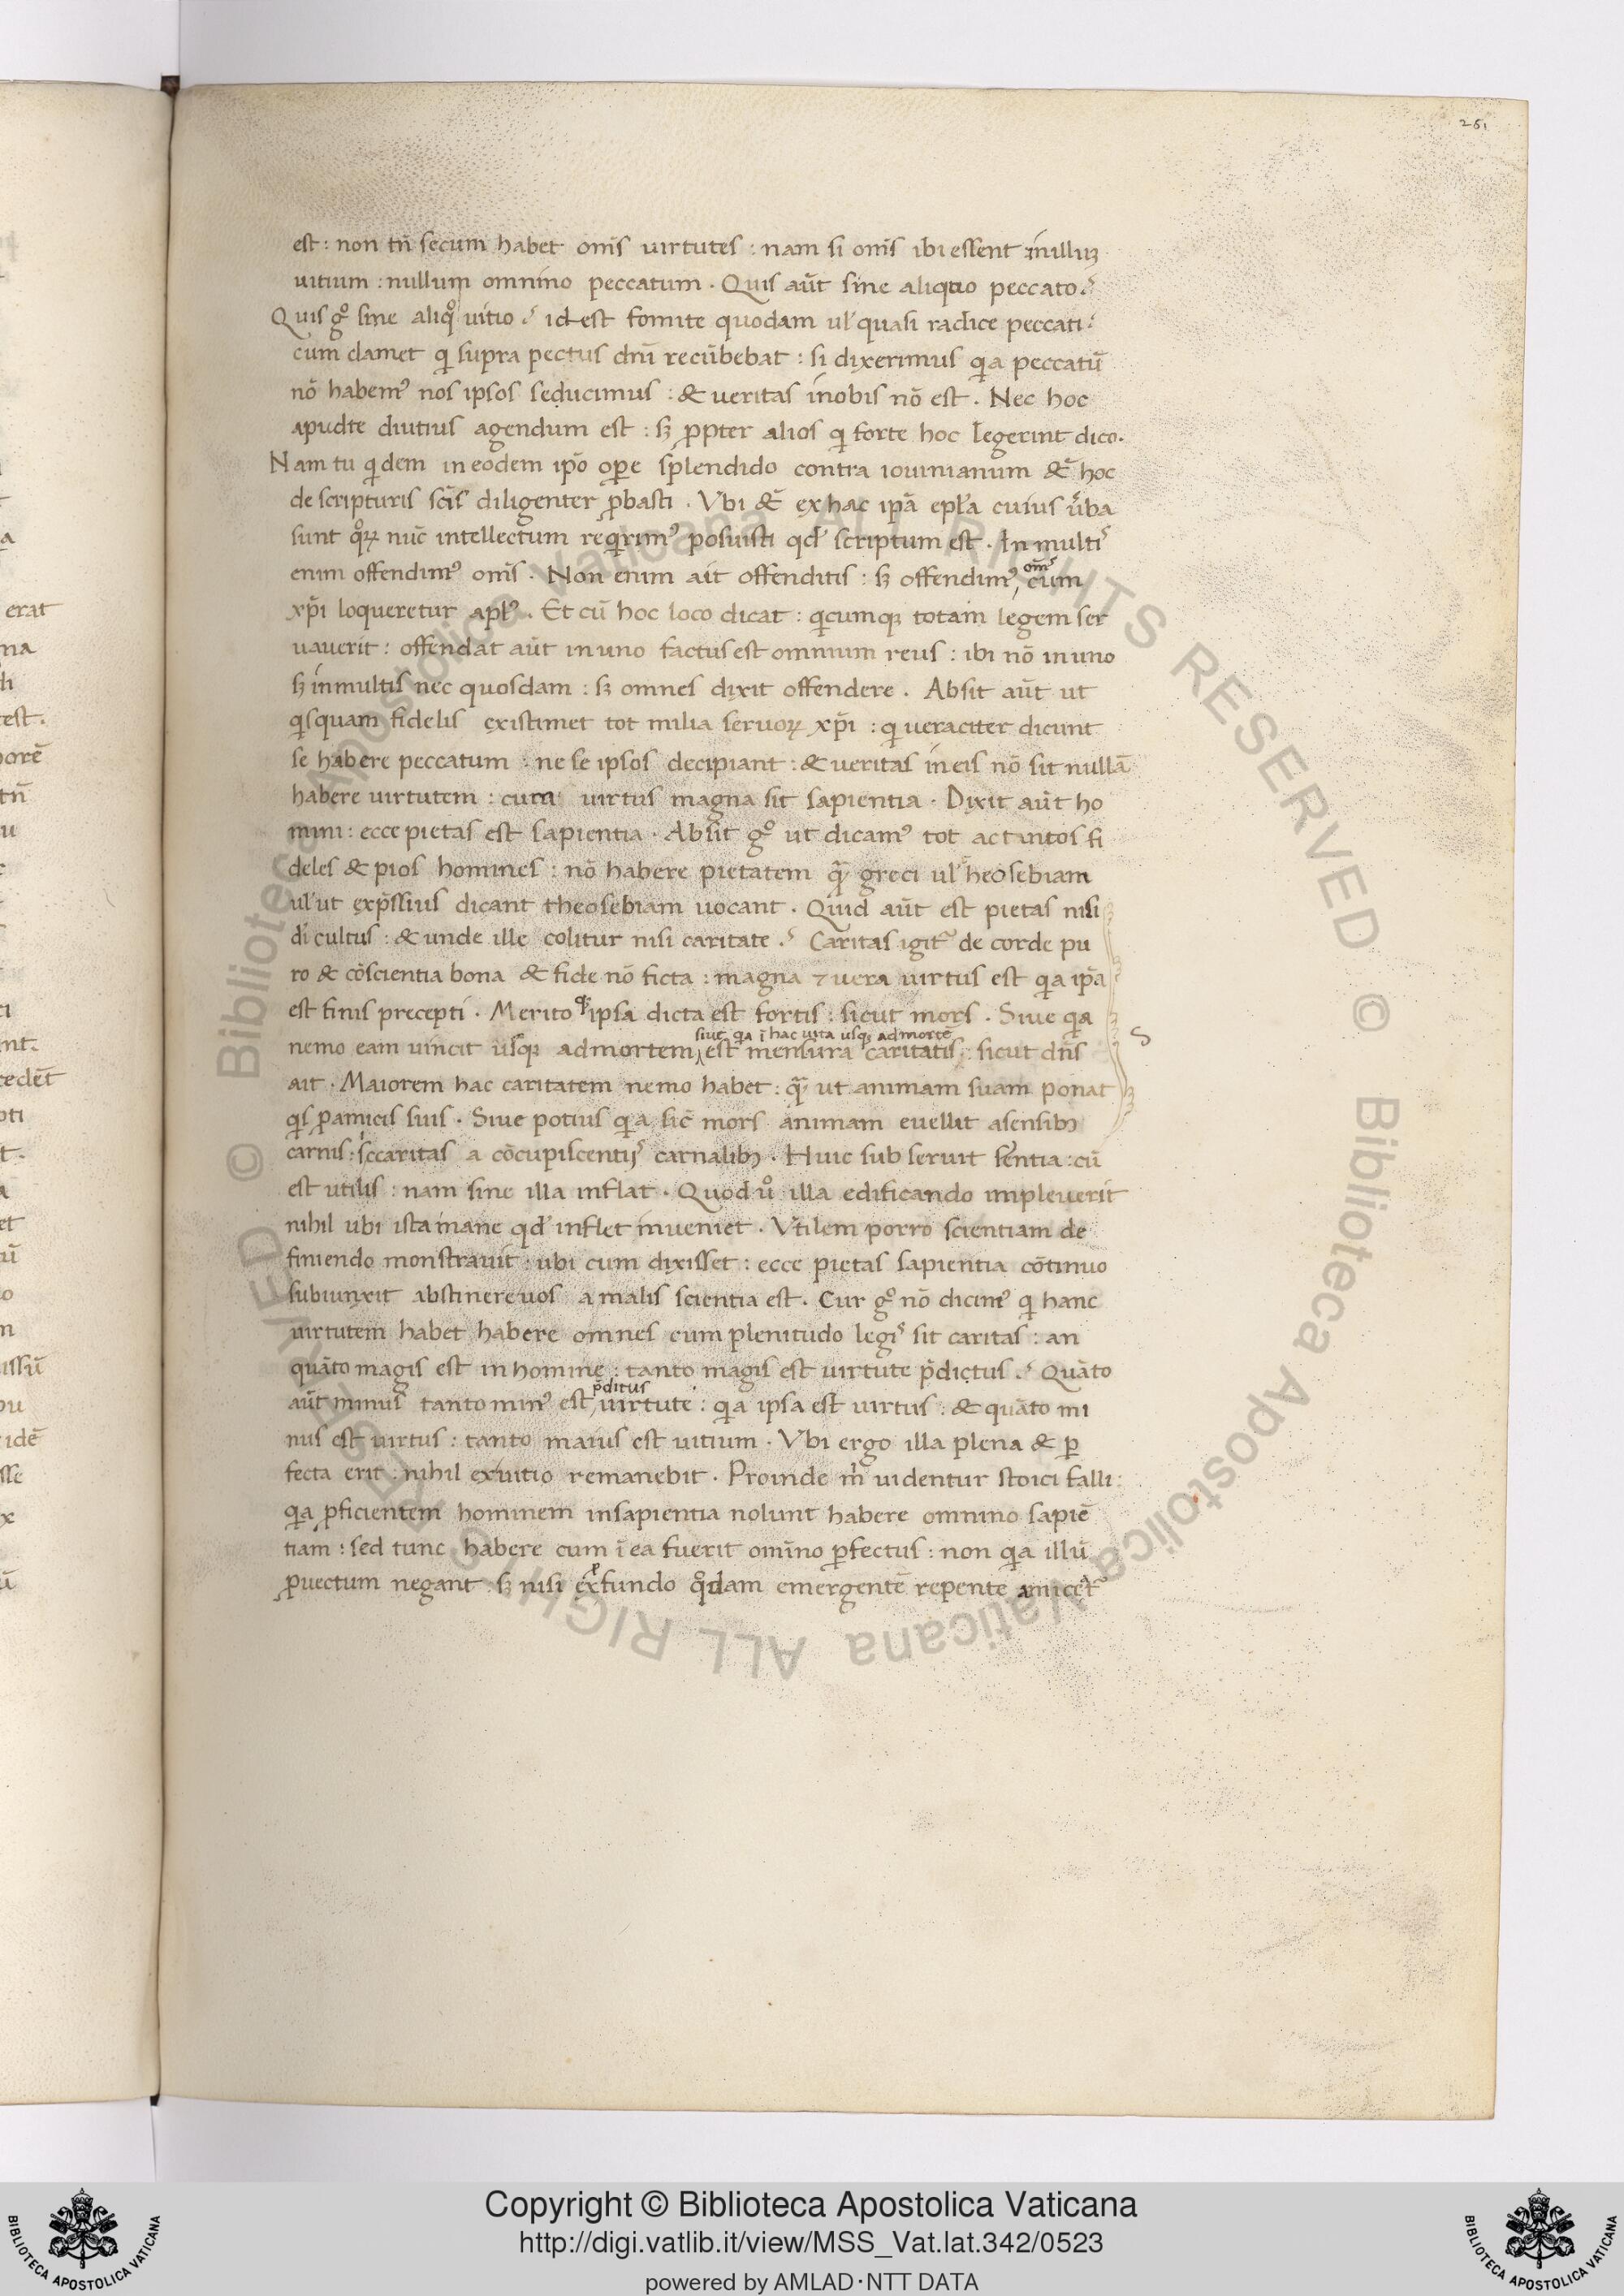 261
est : non tn̄ secum habet om̄s uirtutes : nam si om̄s ibi essent : nullūz
uitium : nullum omnino peccatum . Quis aūt sine aliquo peccato ?
Quis gͦ sine aliqͦ uitio ? id est fomite quodam ul' quasi radice peccati ?
cum clamet qi supra pectus dn̄i recūbebat : si dixerimus qia peccatū
nō habem⁹ nos ipsos seducimus : & ueritas in nobis nō est . Nec hoc
apud te diutius agendum est : sꝫ ꝓpter alios qi forte hoc legerint dico .
Nam tu qidem in eodem ip̄o oꝑe splendido contra iouinianum &̄ hoc
de scripturis sc̄is diligenter ꝓbasti . Vbi &̄ ex hac ip̄a epl'a cuius ūba
sunt qͦꝝ nūc intellectum reqirim⁹ posuisti qd' scriptum est . In multis
enim offendim⁹ om̄s . Non enim ait offenditis : sꝫ offendim⁹ om̄s cum
xp̄i loqueretur apl'⁹ . Et cū hoc loco dicat : qicumqꝫ totam legem ser
uauerit : offendat aūt in uno factus est omnium reus : ibi nō in uno
sꝫ in multis nec quosdam : sꝫ omnes dixit offendere . Absit aūt ut
qisquam fidelis existimet tot milia seruoꝝ xp̄i : qi ueraciter dicunt
se habere peccatum : ne se ipsos decipiant : & ueritas in eis nō sit nullā
habere uirtutem : cum uirtus magna sit sapientia . Dixit aūt ho
mini : ecce pietas est sapientia . Absit gͦ ut dicam⁹ tot ac tantos fi
deles & pios homines : nō habere pietatem quā greci ul' heosebiam
ul' ut exp̄ssius dicant theosebiam uocant . Quid aūt est pietas nisi
di cultus : & unde ille colitur nisi caritate ? Caritas igit᷑ de corde pu
ro & cōscientia bona & fide nō ficta : magna ⁊ uera uirtus est qia ip̄a
est finis precepti . Merito qꝫ ipsa dicta est fortis : sicut mors . Siue qia
siue qia ī hac uita usqꝫ ad mortē
nemo eam uincit usqꝫ ad mortem est mensura caritatis : sicut dn̄s
ait . Maiorem hac caritatem nemo habet : quā ut animam suam ponat
qis ꝓ amicis suis . Siue potius qia sic̄ mors animam euellit a sensibꝫ
carnis : sic caritas a cōcupiscentijs carnalibꝫ . Huic subseruit sentia : cū
est utilis : nam sine illa inflat . Quod uͦ illa edificando impleuerit
nihil ubi ista inane qd' inflet inueniet . Vtilem porro scientiam de
finiendo monstrauit : ubi cum dixisset : ecce pietas sapientia cōtinuo
subiunxit abstinere uos a malis scientia est . Cur gͦ nō dicim⁹ qi hanc
uirtutem habet habere omnes cum plenitudo legis sit caritas : an
quāto magis est in homine : tanto magis est uirtute p̄dictus ? Quāto
p̄ditus
aūt minus tanto min⁹ est uirtute : qia ipsa est uirtus : & quāto mi
nus est uirtus : tanto maius est uitium . Vbi ergo illa plena & ꝑ
fecta erit : nihil ex uitio remanebit . Proinde m̄ uidentur stoici falli :
qia ꝓficientem hominem in sapientia nolunt habere omnino sapiē
tiam : sed tunc habere cum ī ea fuerit omīno ꝑfectus : non qia illū
ꝓuectum negant : sꝫ nisi ex ꝓfundo qͦdam emergentē repente
Copyright © Biblioteca Apostolica Vaticana
http://digi.vatlib.it/view/MSS_Vat.lat.342/0523
powered by AMLAD·NTT DATA